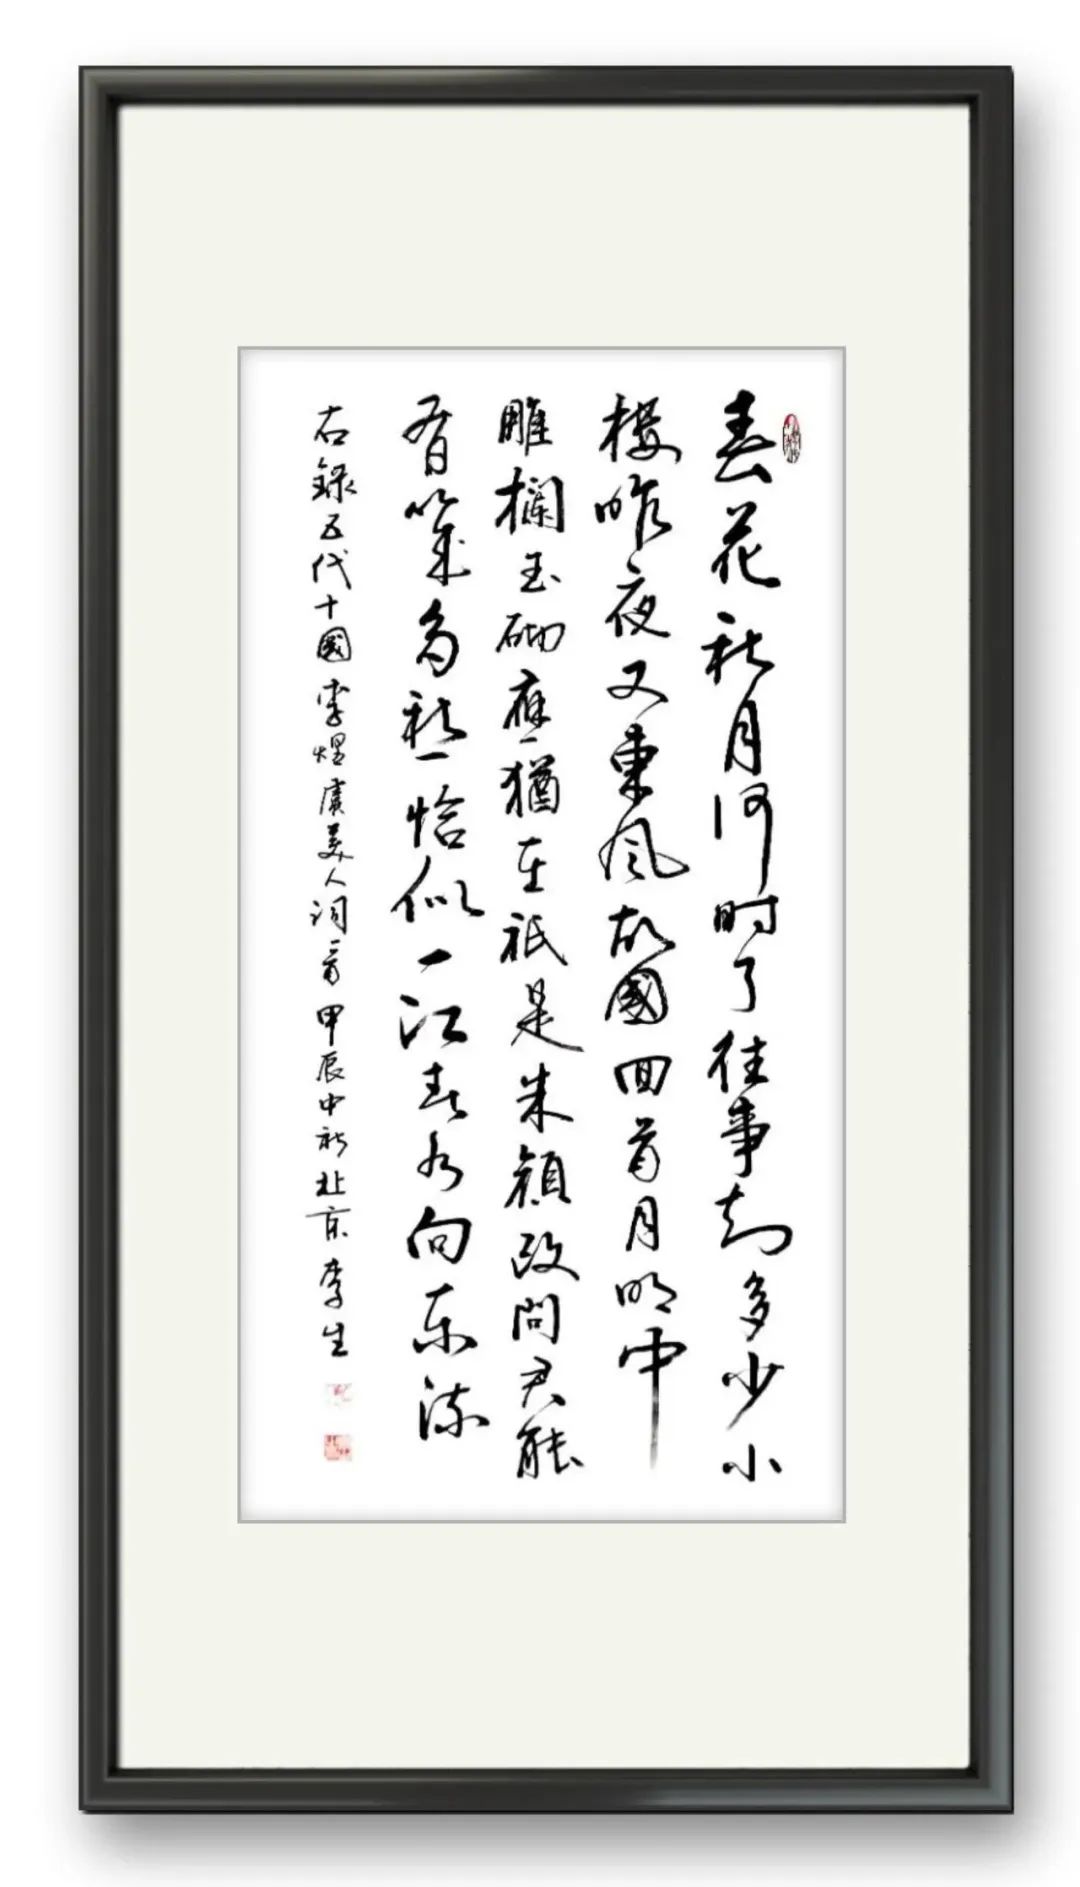 春花秋月何时了往事知多少小
楼昨夜又東风故國回首月明中
雕欄玉砌應猶在祇是朱顔改問君能
有幾多愁恰似一江春水向东流
右錄五代十國李煜虞美人词一首甲辰中秋北京李生